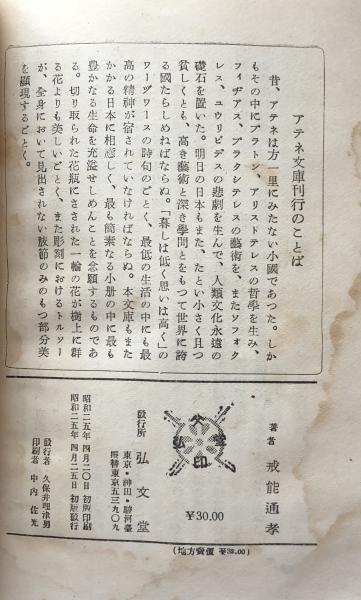 アテネ文庫刊行のことば
昔、アテネは方一里にみたない小國であつた。しか
もその中にプラトン、アリストテレスの哲學を生み、
フィヂアス、プラクシテレスの藝術を、またソフォク
レス、ユウリピデスの悲劇を生んで、人類文化永遠の
礎石を置いた。明日の日本もまた、たとい小さく且つ
貧しくとも、高き藝術と深き學問とをもつて世界に誇
る國たらしめねばならぬ。「暮しは低く思いは高く」の
ワーヅワースの詩句のごとく、最低の生活の中にも最
高の精神が宿されていなければならぬ。本文庫もまた
かかる日本に相應しく、最も簡素なる小册の中に最も
豊かなる生命を充溢せしめんことを念願するものであ
る。切り取られた花瓶にさされた一輪の花が樹上に群
る花よりも美しいごとく、また彫刻におけるトルソー
が、全身において見出されない肢節のみのもつ部分美
を顯現するごとく。
著者 戒能通孝
弘文堂印
¥30.00
發行所 弘文堂
東京・神田・駿河臺
振替東京五三九〇九
昭和二五年四月二〇日 初版印刷
昭和二五年四月二五日 初版發行
發行者 久保井理津男
印刷者 中内佐光
(地方賣價 ¥32.00)